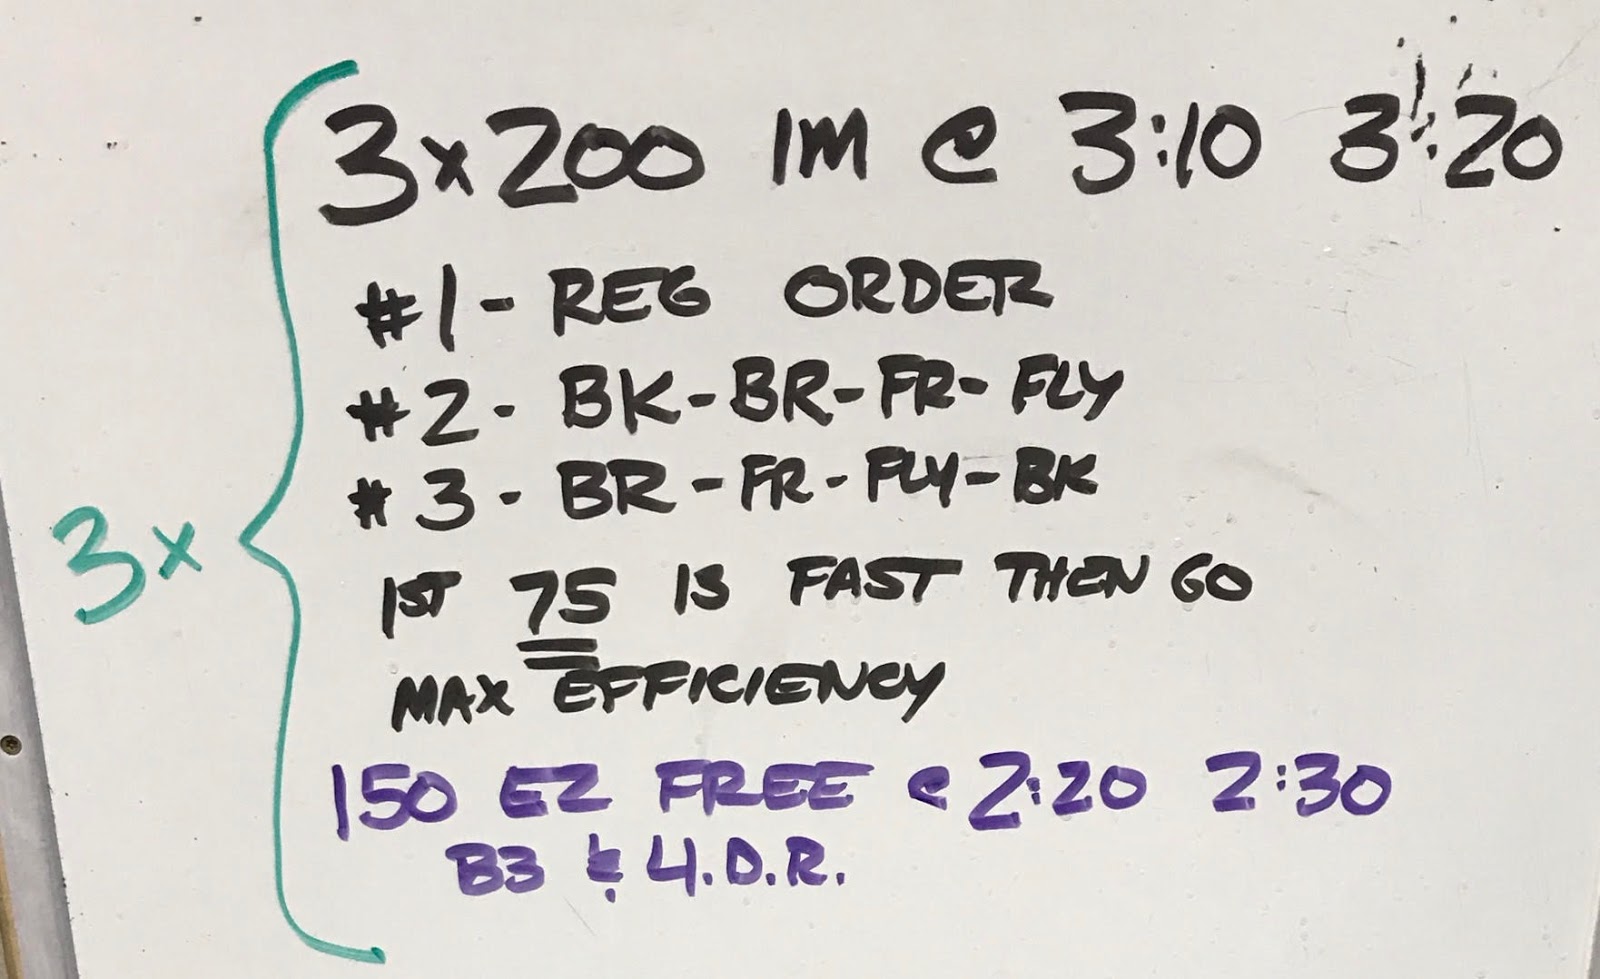 3x200 IM @ 3:10 3:20
#1 - REG ORDER
#2 - BK-BR-FR-FLY
3x
#3 - BR-FR-FLY-BK
1ST 75 IS FAST THEN GO
MAX EFFICIENCY
150 EZ FREE @ 2:20 2:30
B3 & 4.D.R.